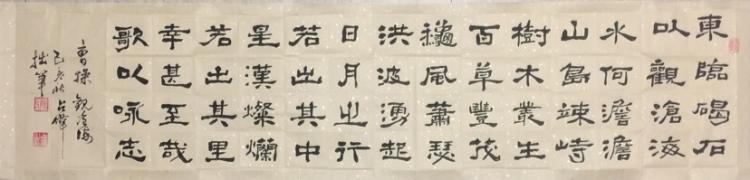 東臨碣石
以觀滄海
水何澹澹
山島竦峙
樹木叢生
百草豐茂
龝風蕭瑟
洪波湧起
日月之行
若出其中
星漢燦爛
若出其里
幸甚至哉
歌以咏志
曹操 觀滄海
己亥秋占
拙筆